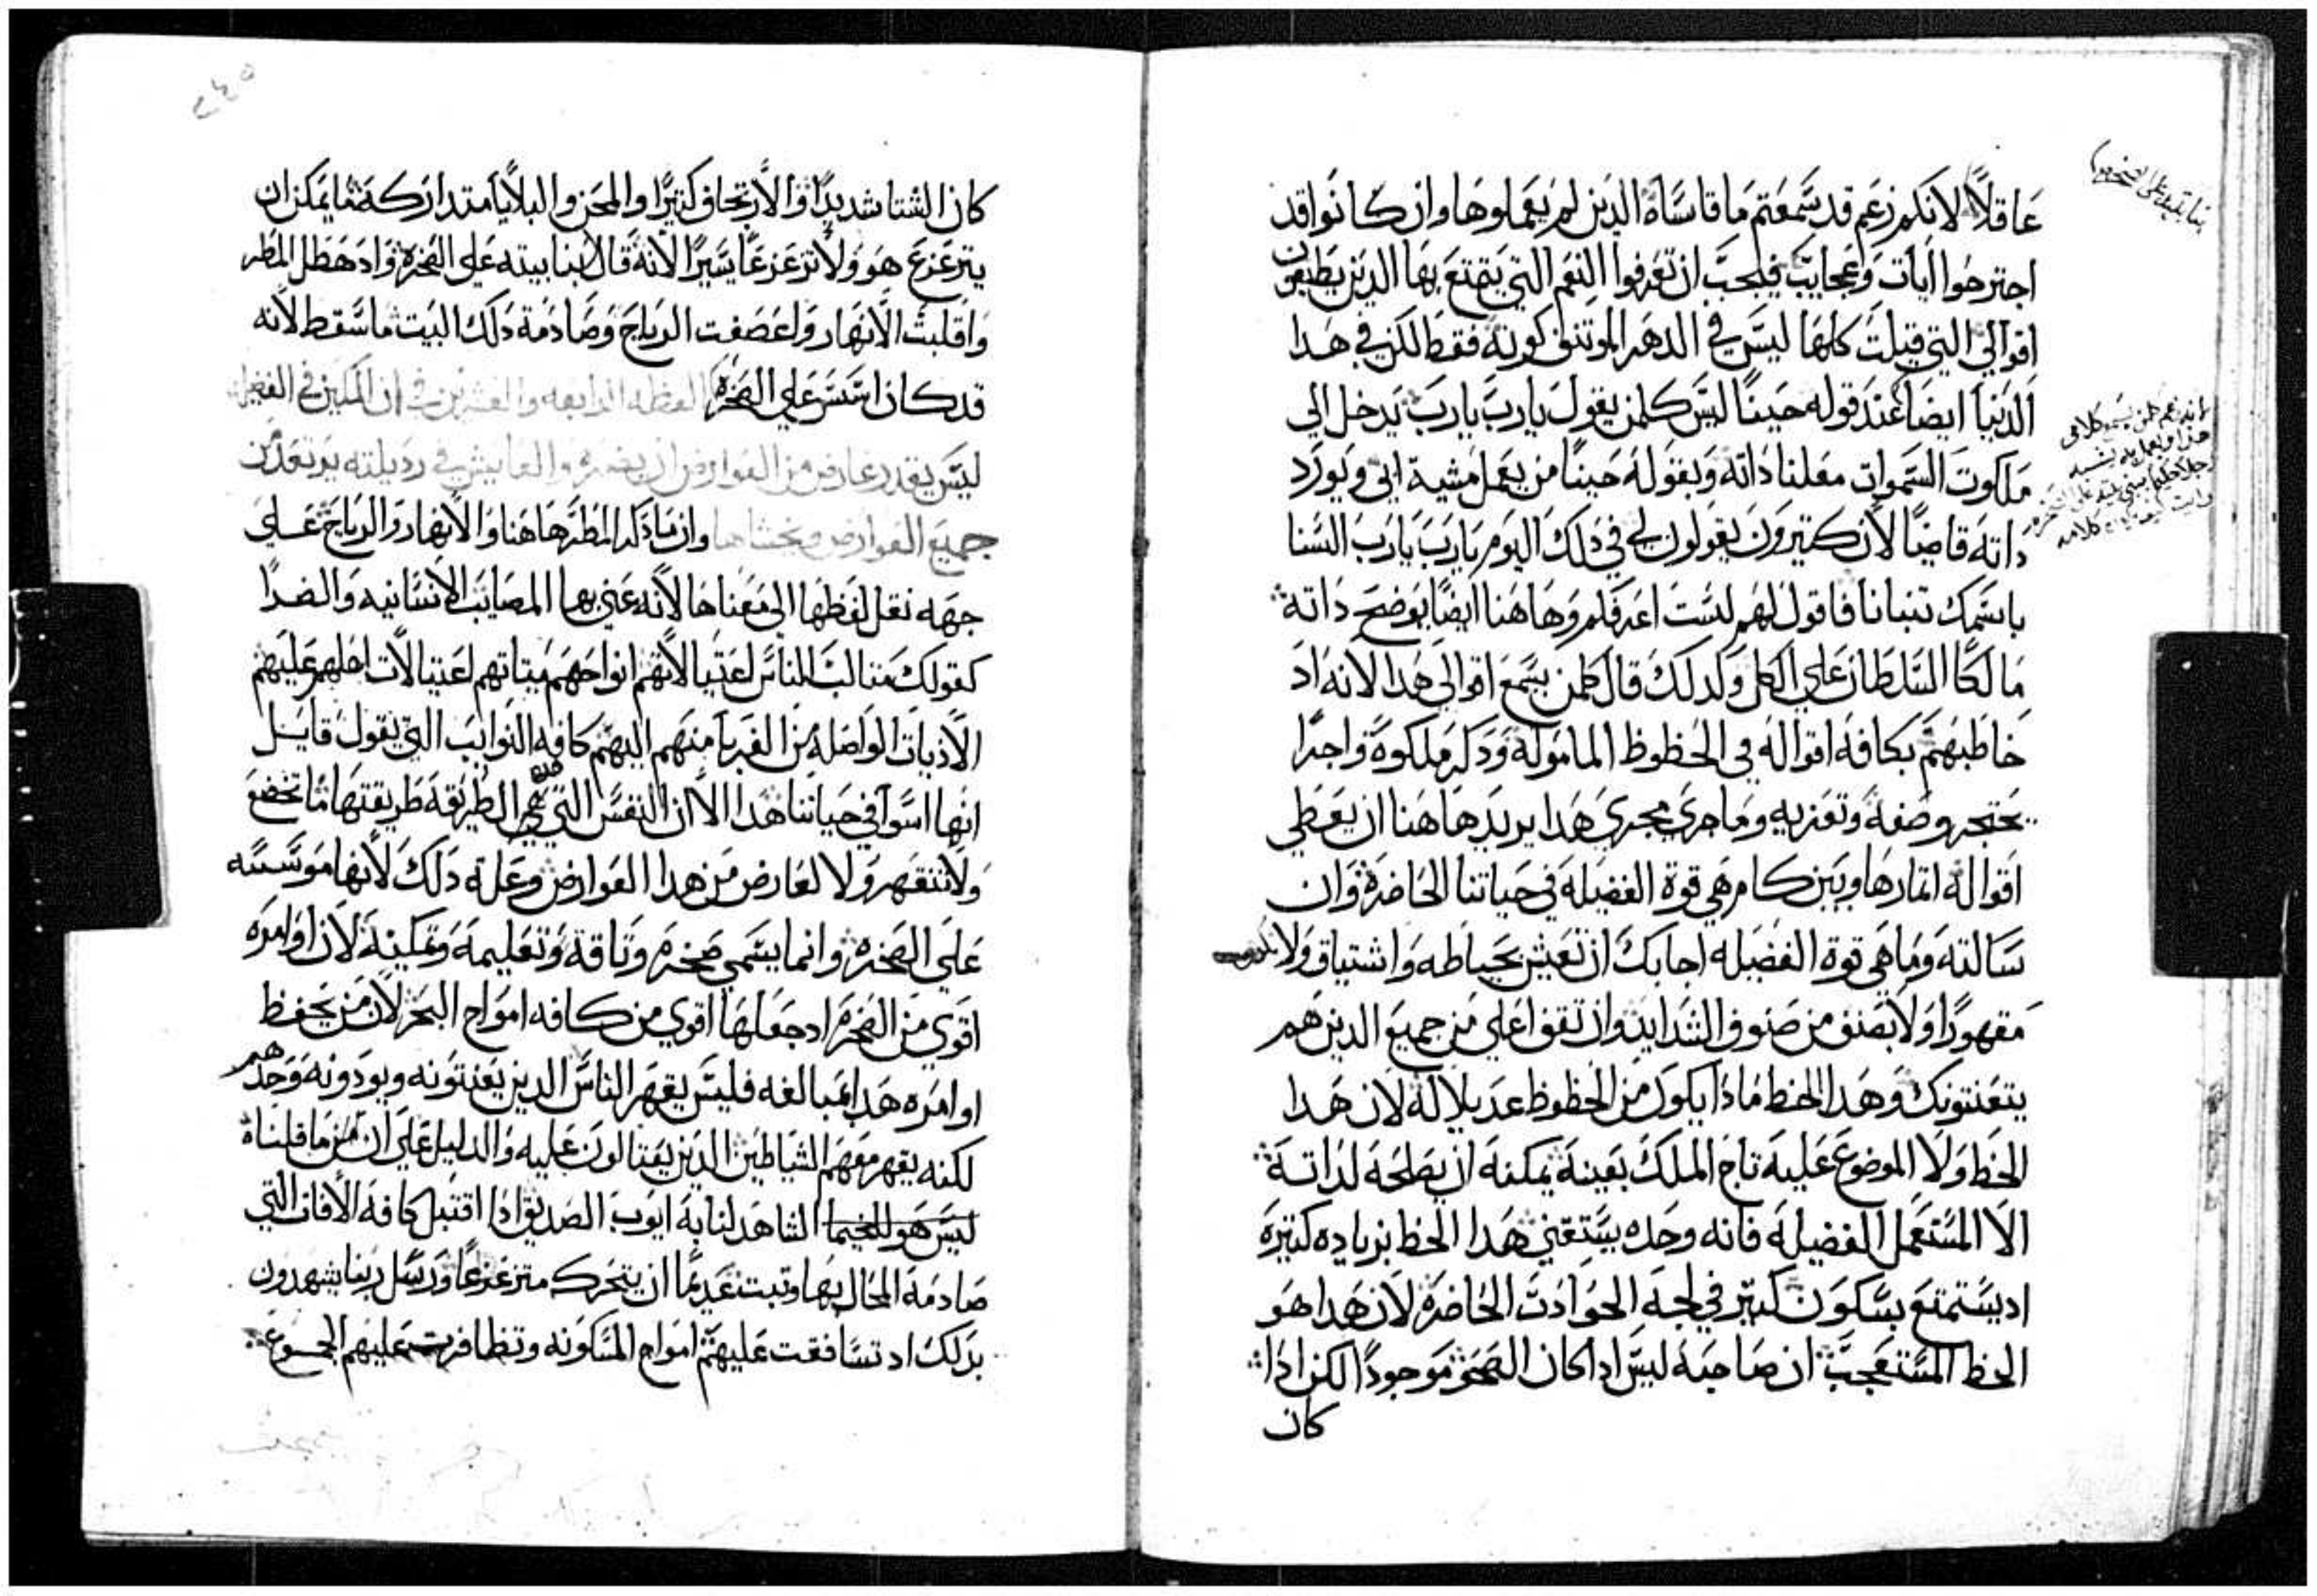 عاقلاً لانكم زعم قد سمعتم ما قاساة الدين لم يعملوها وان كانوا قد
اجترحوا ايات وعجايب فيجب ان تعرفوا النعم التي يتمتع بها الدين يطيعون
اقوالي التي قيلت كلها ليس في الدهر الموتنف كونه فقط لكن في هدا
الدنيا ايضا عند قوله حينًا ليس كلمن يقول يارب يارب يدخل الي
ملكوت السموات معلنا داته وبقوله حينا من يعمل مشية ابي ويورد
داته قاضيا لان كتيرون يقولون لي في دلك اليوم يارب يارب السنا
باسمك تنبانا فاقول لهم لست اعرفكم وهاهنا ايضا يوضح داته
مالكا السلطان علي الكل ولدلك قال كلمن يسمع اقوالي هدا لانه اد
خاطبهم بكافة اقواله في الحظوظ المامولة ودكر ملكوة واجرا
يحتجر وصفه وتعزيه وما جري مجري هدا يريد هاهنا ان يعطي
اقواله اتمارها ويبين كام هي قوة الفضيلة في حياتنا الحاضرة وان
سالته وما هي قوة الفضيله اجابك ان تعيش بحياطه واشتياق ولا
مقهورًا ولا بصنف من صنوف الشدايد وان تقف اعلي من جميع الدين هم
يتعنتونك وهدا الحظ مادا يكون من الحظوظ عديلا له لان هدا
الحظ ولا الموضوع عليه تاج الملك بعينه يمكنه ان يصلحه لداته
الا المستعمل الفضيلة فانه وحده يستقني هدا الحظ بزياده كتيرة
اد يستمتع بسكون كتير في لجة الحوادت الحاضرة لان هدا هو
الحظ المستعجب ان صاحبه ليس ادا كان الصحو موجودًا لكن ادا
كان
٢٤٥
كان الشتا شديدًا والارتجاف كتيرًا والمحن والبلايا متداركة ما يمكن ان
يتزعزع هو ولا تزعزعًا يسيرًا لانه قال ابنا بيته علي الصخرة واد هطل المطر
واقلبت الانهار واعصفت الرياح وصادمة دلك البيت ما سقط لانه
قد كان اسس علي الصخرة العظه الرابعه والعشرين في ان المكين في الفضيله
ليس يقدر عارض من العوارض ان يضره والعايش في رديلته يرتعد من
جميع العوارض ويخشاها وان ما دكر المطر هاهنا والانهار والرياح علي
جهه نقل لفظها الي معناها لانه عني بها المصايب الانسانيه والضدا
كقولك متالب الناس اغتيالاتهم انواحهم ميتاتهم اغتيالات اهلهم عليهم
الاديات الواصله من الغربا منهم اليهم كافه النوايب التي يقول قايل
انها اسوا في حياتنا هدا الا ان النفس التي هي الطريقة طريقتها ما تخضع
ولا تنقهر ولا لعارض من هدا العوارض وعلة دلك لانها موسسه
علي الصخرة وانما يسمي صخرة وتاقة وتعليمه وتمكينه لان اوامره
اقوي من الصخرة اد جعلها اقوي من كافه امواج البحر لان من يحفظ
اوامره هدا بمبالغه فليس يقهر الناس الدين يعنتونه ويودونه وحدهم
لكنه يقهر معهم الشياطين الدين يغتالون عليه والدليل علي ان من ما قلناة
ليس هو الشاهد لنا به ايوب الصديق ادا اقتبل كافة الافات التي
صادمه المحال بها وتبت عديمًا ان يتحرك متزعزعًا ورسل ربنا يشهدون
بدلك اد تسافقت عليهم امواج المسكونه وتظافرت عليهم الجموع